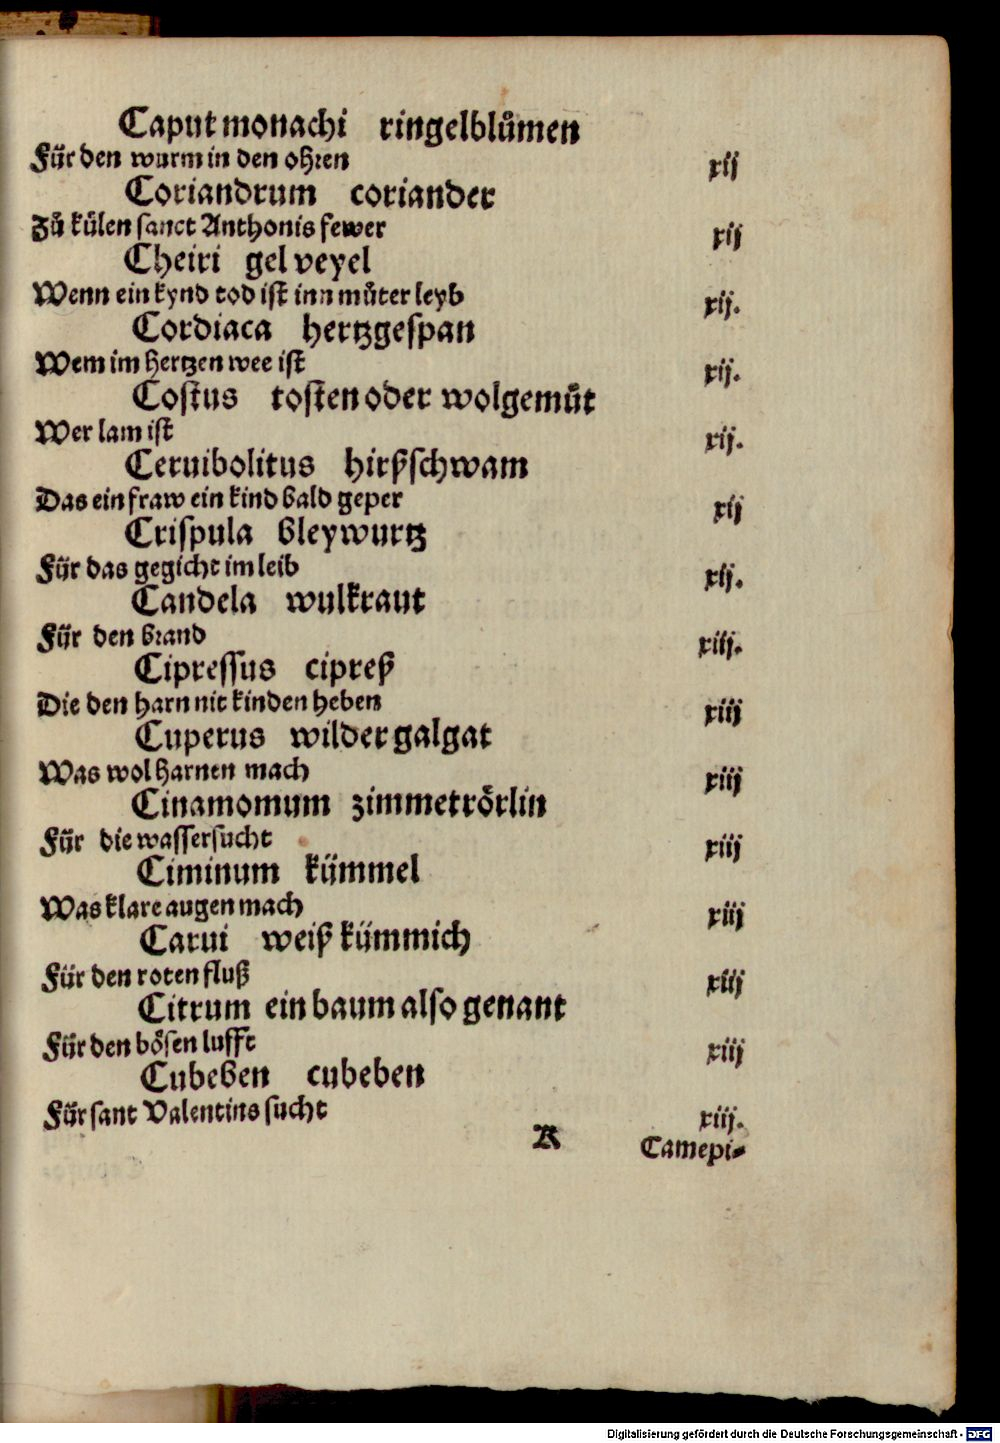 Caput monachi ringelblůmen
Für den wurm in den ohren xij
Coriandrum coriander
Zů kůlen sanct Anthonis fewer xij
Cheiri gel veyel
Wenn ein kynd tod ist inn můter leyb xij.
Cordiaca hertzgespan
Wem im hertzen wee ist xij.
Costus tosten oder wolgemůt
Wer lam ist xij.
Ceruibolitus hirßschwam
Das ein fraw ein kind bald geper xij
Crispula bleywurtz
Für das gegicht im leib xij.
Candela wulkraut
Für den brand xiij.
Cipressus cipreß
Die den harn nit kinden heben xiij
Cuperus wilder galgat
Was wol harnen mach xiij
Cinamomum zimmetrörlin
Für die wassersucht xiij
Ciminum kümmel
Was klare augen mach xiij
Carui weiß kümmich
Für den roten fluß xiij
Citrum ein baum also genant
Für den bösen lufft xiij
Cubeben cubeben
Für sant Valentins sucht xiij.
A Camepi⸗
Digitalisierung gefördert durch die Deutsche Forschungsgemeinschaft - DFG